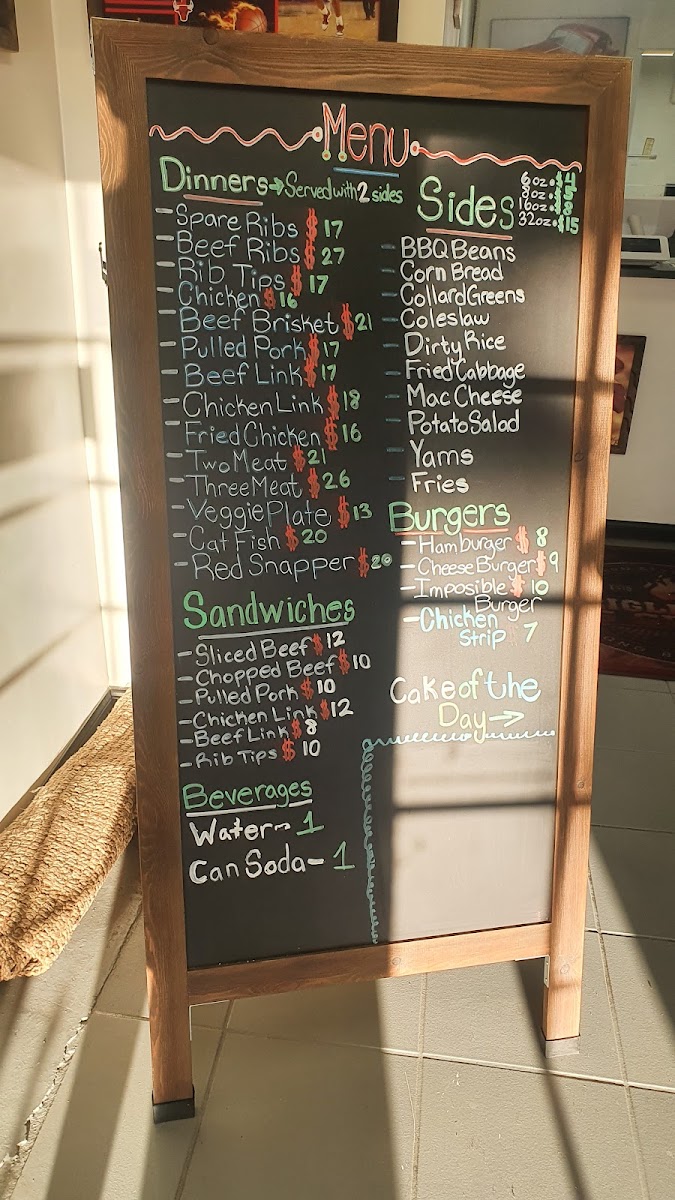 Menu
Dinners → Served with 2 sides
- Spare Ribs $17
- Beef Ribs $27
- Rib Tips $17
- Chicken $16
- Beef Brisket $21
- Pulled Pork $17
- Beef Link $17
- Chicken Link $18
- Fried Chicken $16
- Two Meat $21
- Three Meat $26
- Veggie Plate $13
- Cat Fish $20
- Red Snapper $20
Sandwiches
- Sliced Beef $12
- Chopped Beef $10
- Pulled Pork $10
- Chicken Link $12
- Beef Link $8
- Rib Tips $10
Beverages
Water - 1
Can Soda - 1
Sides
6oz. $4
8oz.
16oz.
32oz. $15
- BBQ Beans
- Corn Bread
- Collard Greens
- Coleslaw
- Dirty Rice
- Fried Cabbage
- Mac Cheese
- Potato Salad
- Yams
- Fries
Burgers
- Hamburger $8
- Cheese Burger $9
- Imposible $10
Burger
- Chicken
Strip 7
Cake of the
Day →